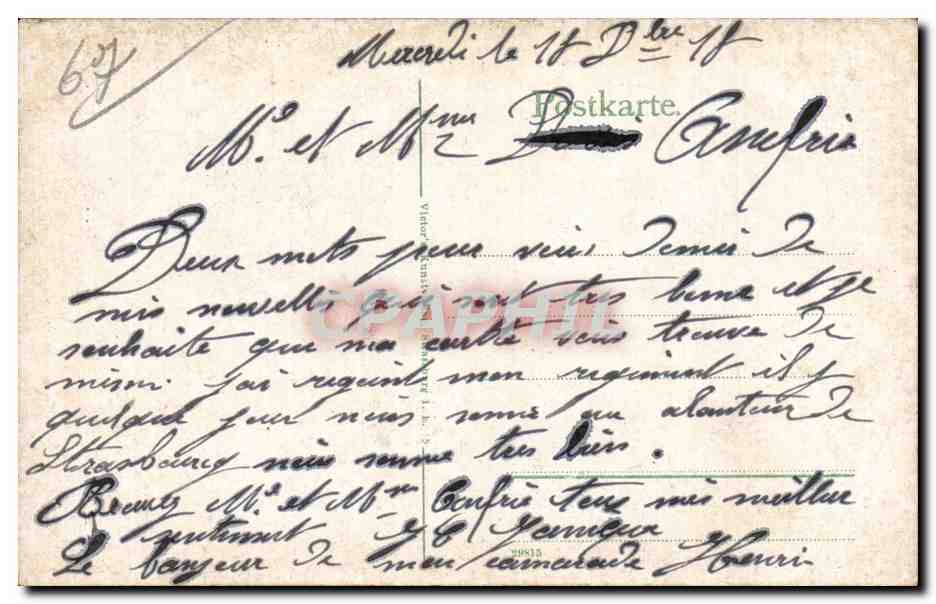 67
Mercredi le 18 Dbre 18
Postkarte.
Mr. et Mme
Deux mots pour vous donné de
mis nouvelles qui sont tres bonne et je
souhaite que ma carte vous trouve de
mimi. j'ai regoint mon regiment il y
quelque jour nous somme au alantour de
Strasbourg nous somme tres bien.
Recevez Mr. et Mme tous mis meilleur
sentiment
Le bonjour de mon camarade Henri
29815
CPAPHIL